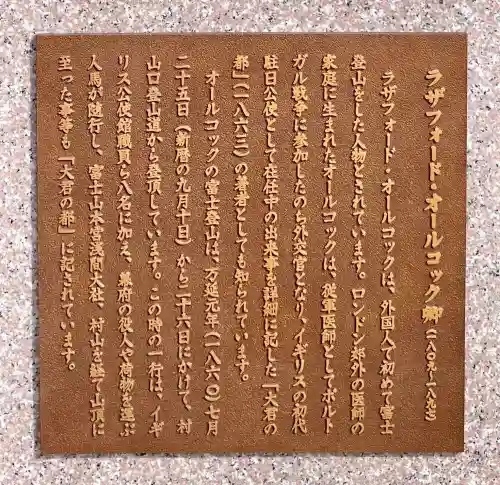 ラザフォード・オールコック卿(一八〇九～一八九七)
ラザフォード・オールコックは、外国人で初めて富士
登山をした人物とされています。ロンドン郊外の医師の
家庭に生まれたオールコックは、従軍医師としてポルト
ガル戦争に参加したのち外交官となり、イギリスの初代
駐日公使として在任中の出来事を詳細に記した『大君の
都』(一八六三)の著者としても知られています。
オールコックの富士登山は、万延元年(一八六〇)七月
二十五日(新暦の九月十日)から二十六日にかけて、村
山口登山道から登頂しています。この時の一行は、イギ
リス公使館職員ら八名に加え、幕府の役人や荷物を運ぶ
人馬が随行し、富士山本宮浅間大社、村山を経て山頂に
至った事等も『大君の都』に記されています。